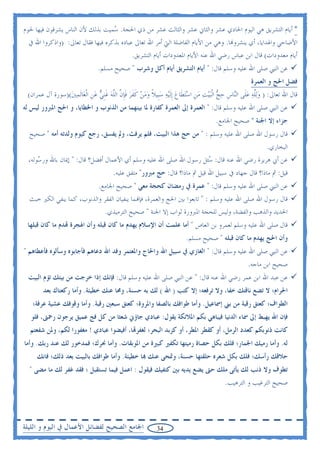 * أيام التشريق هي اليوم الحادي عشر والثاني عشر والثالث عشر من ذي الحجة. سميت بذلك لأن الناس يشرقون فيها لحوم
الأضاحي والهدايا، أي ينشرونها. وهي من الأيام الفاضلة التي أمر الله تعالى عباده بذكره فيها فقال تعالى: (واذكروا الله في
أيام معدودات) قال ابن عباس رضي الله عنه الأيام المعدودات أيام التشريق.
عن النبي صلى الله عليه وسلم قال: " أيام التشريق أيام أكل وشرب " صحيح مسلم.
فضل الحج و العمرة
قال الله تعالى: ( وَلِلَّهِ عَلَى النَّاسِ حِجُّ الْبَيْتِ مَنِ اسْتَطَاعَ إِلَيْهِ سَبِيلًا وَمَنْ كَفَرَ فَإِنَّ اللَّهَ غَنِيٌّ عَنِ الْعَالَمِينَ)(سورة آل عمران)
عن النبي صلى الله عليه وسلم قال: " العمرة إلى العمرة كفارة لما بينهما من الذنوب و الخطايا، و الحج المبرور ليس له
جزاء إلا الجنة " صحيح الجامع.
قال رسول الله صلى الله عليه وسلم : " من حج هذا البيت، فلم يرفث، ولم يفسق، رجع كيوم ولدته أمه " صحيح
البخاري.
عن أبي هريرة رضي الله عنه قال: سئل رسول الله صلى الله عليه وسلم أي الأعمال أفضل؟ قال: "إيمان بالله ورسوله،
قيل: ثم ماذا؟ قال: جهاد في سبيل الله قيل ثم ماذا؟ قال: حج مبرور" متفق عليه.
عن النبي صلى الله عليه وسلم قال: " عمرة في رمضان كحجة معي " صحيح الجامع.
قال رسول الله صلى الله عليه وسلم : " تابعوا بين الحج والعمرة، فإنهما ينفيان الفقر والذنوب، كما ينفي الكير خبث
الحديد والذهب والفضة، وليس للحجة المبرورة ثواب إلا الجنة " صحيح الترمذي.
قال النبي صلى الله عليه وسلم لعمرو بن العاص " أما علمت أن الإسلام يهدم ما كان قبله وأن الهجرة تهدم ما كان قبلها
وأن الحج يهدم ما كان قبله " صحيح مسلم.
عن النبي صلى الله عليه وسلم قال: " الغازي في سبيل الله والحاج والمعتمر وفد الله دعاهم فأجابوه وسألوه فأعطاهم "
صحيح ابن ماجه.
عن عبد الله ابن عمر رضي الله عنه قال: " عن النبي صلى الله عليه وسلم قال: فإنك إذا خرجت من بيتك تؤم البيت
الحرام، لا تضع ناقتك خفا، ولا ترفعه؛ إلا كتب ( الله ) لك به حسنة، ومحا عنك خطيئة. وأما ركعتاك بعد
الطواف؛ كعتق رقبة من بني إسماعيل. وأما طوافك بالصفا والمروة؛ كعتق سبعين رقبة. وأما وقوفك عشية عرفة؛
فإن الله يهبط إلى سماء الدنيا فيباهي بكم الملائكة يقول: عبادي جاؤني شعثا من كل فج عميق يرجون رحمتي، فلو
كانت ذنوبكم كعدد الرمل، أو كقطر المطر، أو كزبد البحر؛ لغفرتها، أفيضوا عبادي ! مغفورا لكم، ولمن شفعتم
له. وأما رميك الجمار؛ فلك بكل حصاة رميتها تكفير كبيرة من الموبقات. وأما نحرك؛ فمدخور لك عند ربك. وأما
حلاقك رأسك؛ فلك بكل شعرة حلقتها حسنة، وتمحى عنك بها خطيئة. وأما طوافك بالبيت بعد ذلك؛ فإنك
تطوف ولا ذنب لك يأتي ملك حتى يضع يديه بين كتفيك فيقول : اعمل فيما تستقبل ؛ فقد غفر لك ما مضى "
صحيح الترغيب و الترهيب.
54 الجامع الصحيح لفضائل الأعمال في اليوم و الليلة